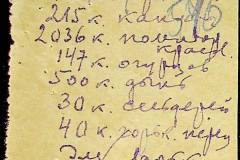 215 к. капус
2036 к. помидор
красн.
147 к. огурцов
500 к. дынь
30 к. сельдерей
40 к. горьк. перец
Для